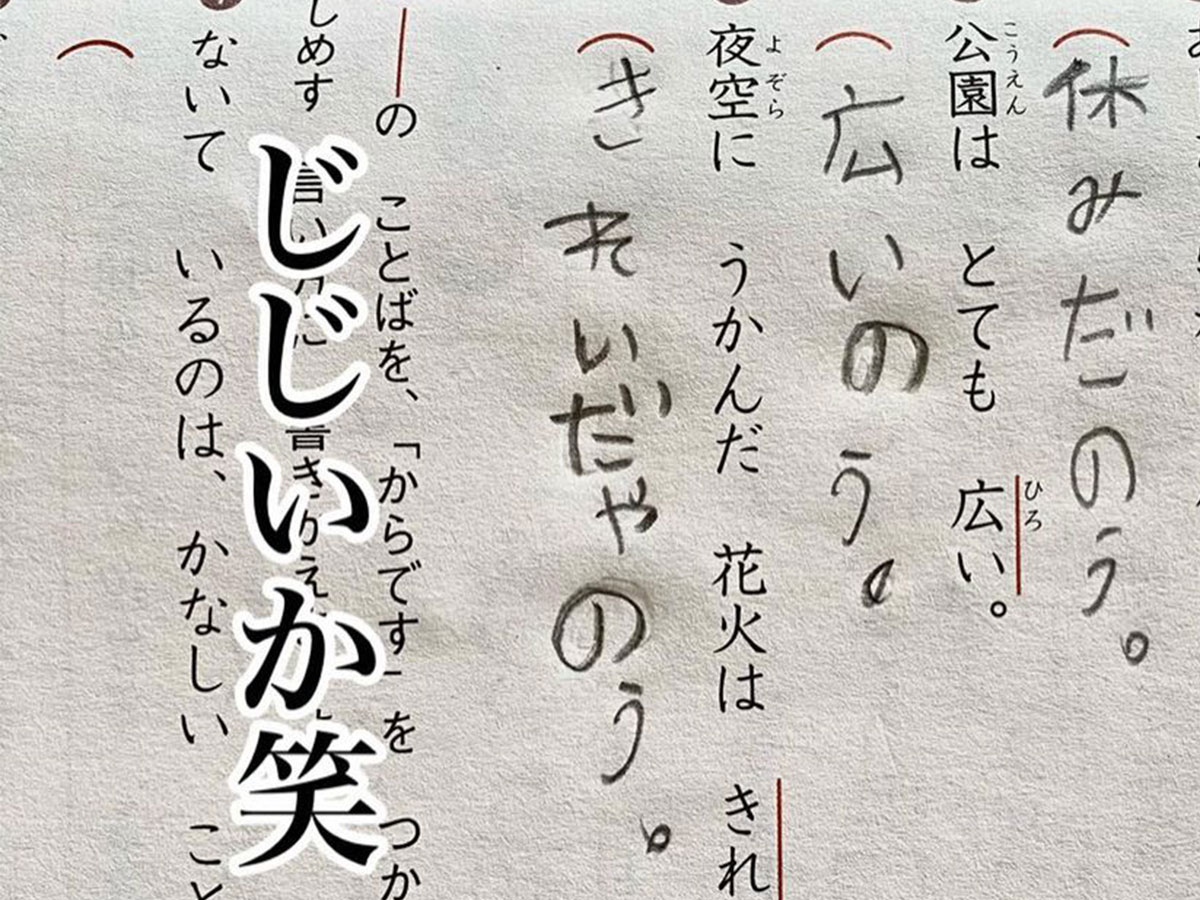 休みだのう。
公園は とても 広い。
こうえん
ひろ
広いのう。
夜空に うかんだ 花火は きれ
よぞら
きれいだやのう。
の ことばを、「からです」を つか
しめす
じじいか笑
ないて いるのは、かなしい こと